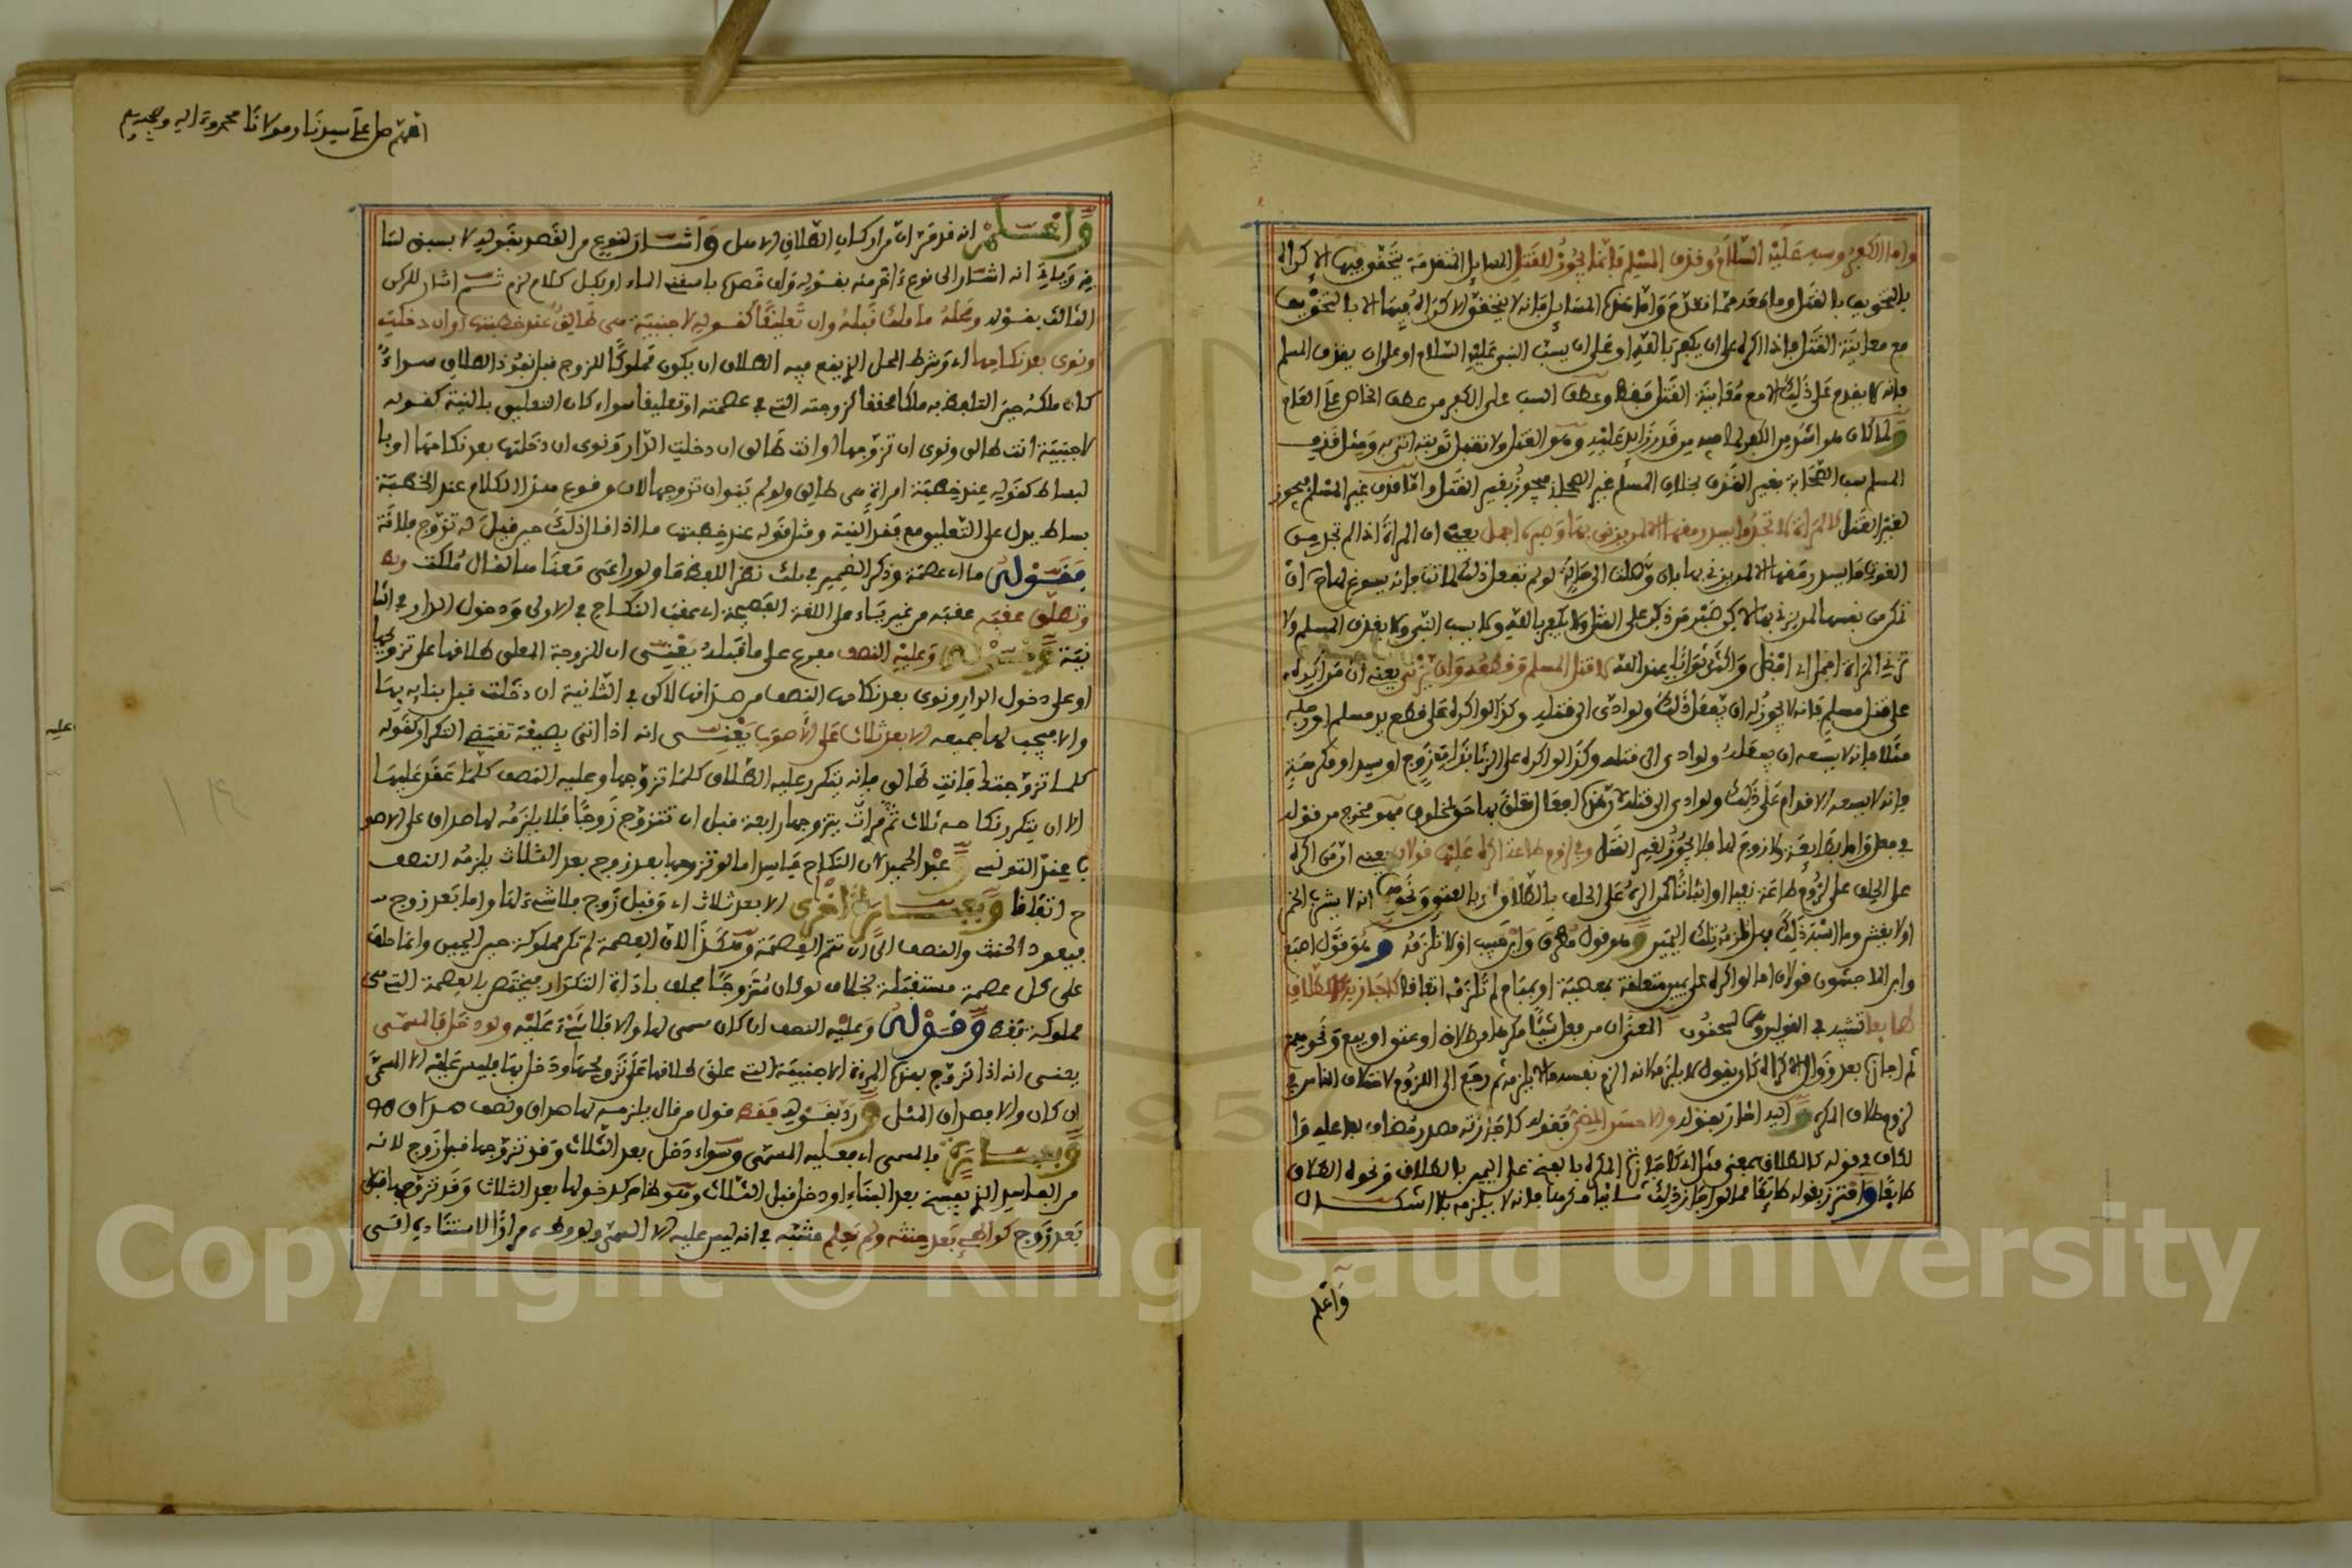 واما الكفر وسبه عليه السلام وقذف المسلم فإنما يجوز للقتل المسايل المتقدمة يتحقق فيها الإكراه
بالتخويف بالقتل وما بعده مما تقدم واما هذه المسايل فإنه لا يتحقق الاكراه فيها الا بالتخويف
مع معاينة القتل فإذا اكره على ان يكفر بالله او على ان يسب النبي عليه السلام او على ان يقذف المسلم
فإنه لا يقدم على ذلك الا مع معاينة القتل فقط وعطف السب على الكفر من عطف الخاص على العام
ولما كان هو اشد من الكفر لما فيه من قدر زايد عليه وهو القتل ولا تقبل توبته اتى به ومثل قذف
المسلم سب الصحابة بغير القذف بخلاف المسلم غير الصحابة فيجوز بغير القتل واما قذف غير المسلم فيجوز
لغير القتل كالمرأة لا تجد ما يسد رمقها الا لمن يزني بها وصبره اجمل يعني ان المرأة اذا لم تجد من
القوت ما يسد رمقها الا لمن يزني بها
تمكن من نفسها لمن يزني بها لاكن صبر من ذكر على القتل ولا يكفر بالله ولا يسب النبي ولا يقذف المسلم ولا
تزني المرأة اجمل اي افضل واكثر ثوابا عند الله لا قتل المسلم وقطعه وان يزني يعني ان من اكره
على قتل مسلم فإنه لا يجوز له ان يفعل ذلك ولو ادى الى قتله وكذا لو اكره على قطع يد مسلم او رجله
مثلا فإنه لا يسعه ان يفعله ولو ادى الى قتله وكذا لو اكره على الزنا بامرأة ذات زوج او سيد او مكرهة
فإنه لا يسعه الاقدام على ذلك ولو ادى الى قتله لأن هذه افعال تعلق بها حق لمخلوق فهو مخرج من قوله
في فعل واما بطايعة ولا زوج لها فلا يجوز لغير القتل وفي لزوم طاعة اكره عليها قولان يعني ان من اكره
على الحلف على لزوم طاعة نفيا او اثباتا كمن اكره على الحلف بالطلاق او بالعتق ونحوه انه لا يشرب الخمر
اولا يغش وما اشبه ذلك هل تلزمه تلك اليمين وهو قول مطرف وابن حبيب او لا تلزمه وهو قول اصبغ
وابن الماجشون قولان اما لو اكره على يمين متعلقة بمعصية او بمباح لم تلزمه اتفاقا كإجازته كالطلاق
طايعا
ثم اجازه بعد زوال الاكراه كان يقول لا يلزمه لانه الزم نفسه ما لا يلزمه ثم رجع الى اللزوم لاختلاف الناس في
لزوم طلاق المكره واليه اشار بقوله والاحسن المضي فقوله كاجازته مصدر مضاف لفاعله وا
لكاف في قوله كالطلاق بمعنى مثل اي كاجازة المكره بالفتح على اليمين بالطلاق ونحوه الطلاق
طايعا واحترز بقوله طايعا مما لو اجاز ذلك ثانيا مكرها فإنه لا يلزمه بلا اشكال
واعلم
اللهم صل على سيدنا ومولانا محمد وءاله وصحبه
واعلم انه قد مر ان من اركان الطلاق الاهل واشار لنوع من القصد بقوله لا بسبق لسا
ن وياتي انه اشار الى نوع ءاخر منه بقوله ولو قصده باسقني الماء او بكل كلام لزم ثم اشار للركن
الثالث بقوله ومحله ما ملك قبله وان تعليقا كقوله لاجنبية هي طالق عند خطبتها او ان دخلت
ونوى بعد نكاحها اي وشرط المحل الذي يقع فيه الطلاق ان يكون مملوكا للزوج قبل نفوذ الطلاق سواء
كان ملكه حين التلفظ به ملكا محققا كزوجته التي في عصمته او تعليقا سواء كان التعليق بالنية كقوله
لاجنبية انت طالق ونوى ان تزوجها او انت طالق ان دخلت الدار ونوى ان دخلتها بعد نكاحها او با
لبساط كقوله عند خطبة امراة هي طالق ولو لم ينو ان تزوجها لان وقوع هذا الكلام عند الخطبة
بساط يدل على التعليق مع فقد النية ومثل قوله عند خطبتها ما اذا قال ذلك حين قيل له تزوج فلانة
فقوله ما اي عصمة وذكر الضمير في ملك نظرا للفظ ما ولو راعى معنا ما لقال ملكت
وتطلق عقبه عقبه من غير ياء على اللغة الفصيحة اي عقب النكاح في الاولى ودخول الدار في الثا
نية وقوله وعليه النصف مفرع على ما قبله يعني ان للزوجة المعلق طلاقها على تزويجها
او على دخول الدار ونوى بعد نكاحها النصف من صداقها لاكن في الثانية ان دخلت قبل بنايه بها
والا فيجب لها جميعه الا بعد ثلاث على الاصوب يعني انه اذا اتى بصيغة تقتضي التكرار كقوله
كلما تزوجتك فانت طالق فإنه يتكرر عليه الطلاق كلما تزوجها وعليه النصف كلما عقد عليها
الا ان يتكرر نكاحه ثلاث مرات ثم يتزوجها رابعة قبل ان تتزوج زوجا فلا يلزمه لها صداق على الاصو
ب عند التونسي وعبد الحميد لان النكاح فاسد اما لو تزوجها بعد زوج بعد الثلاث يلزمه النصف
ح اتفاقا وبعبارة اخرى الا بعد ثلاث اي وقبل زوج فلا شيء لها واما بعد زوج
فيعود الحنث والنصف الى ان تتم العصمة وهكذا لان العصمة لم تكن مملوكة حين اليمين وانما حلف
على كل عصمة مستقبلة بخلاف لو كان متزوجا فحلف باداة التكرار فيختص بالعصمة التي هي
مملوكة فقط وقوله وعليه النصف ان كان سمى لها والا فلا شيء عليه ولو دخل فالمسمى
يعني انه اذا تزوج بهذه المرأة الاجنبية التي علق طلاقها على تزويجها ودخل بها فليس عليه الا المسمى
ان كان والا فصداق المثل ورد بقوله فقط قول من قال يلزمه لها صداق ونصف صداق
وبعبارة فالمسمى اي فعليه المسمى وسواء دخل بعد الثلاث وقد تزوجها قبل زوج لانه
من الفاسد الذي يفسخ بعد البناء او دخل قبل الثلاث وهو ظاهر كدخولها بعد الثلاث وقد تزوجها
بعد زوج كواطئ بعد حنثه ولم يعلم مشبه في انه ليس عليه الا المسمى ولو وطئ مرارا
Copyright © King Saud University